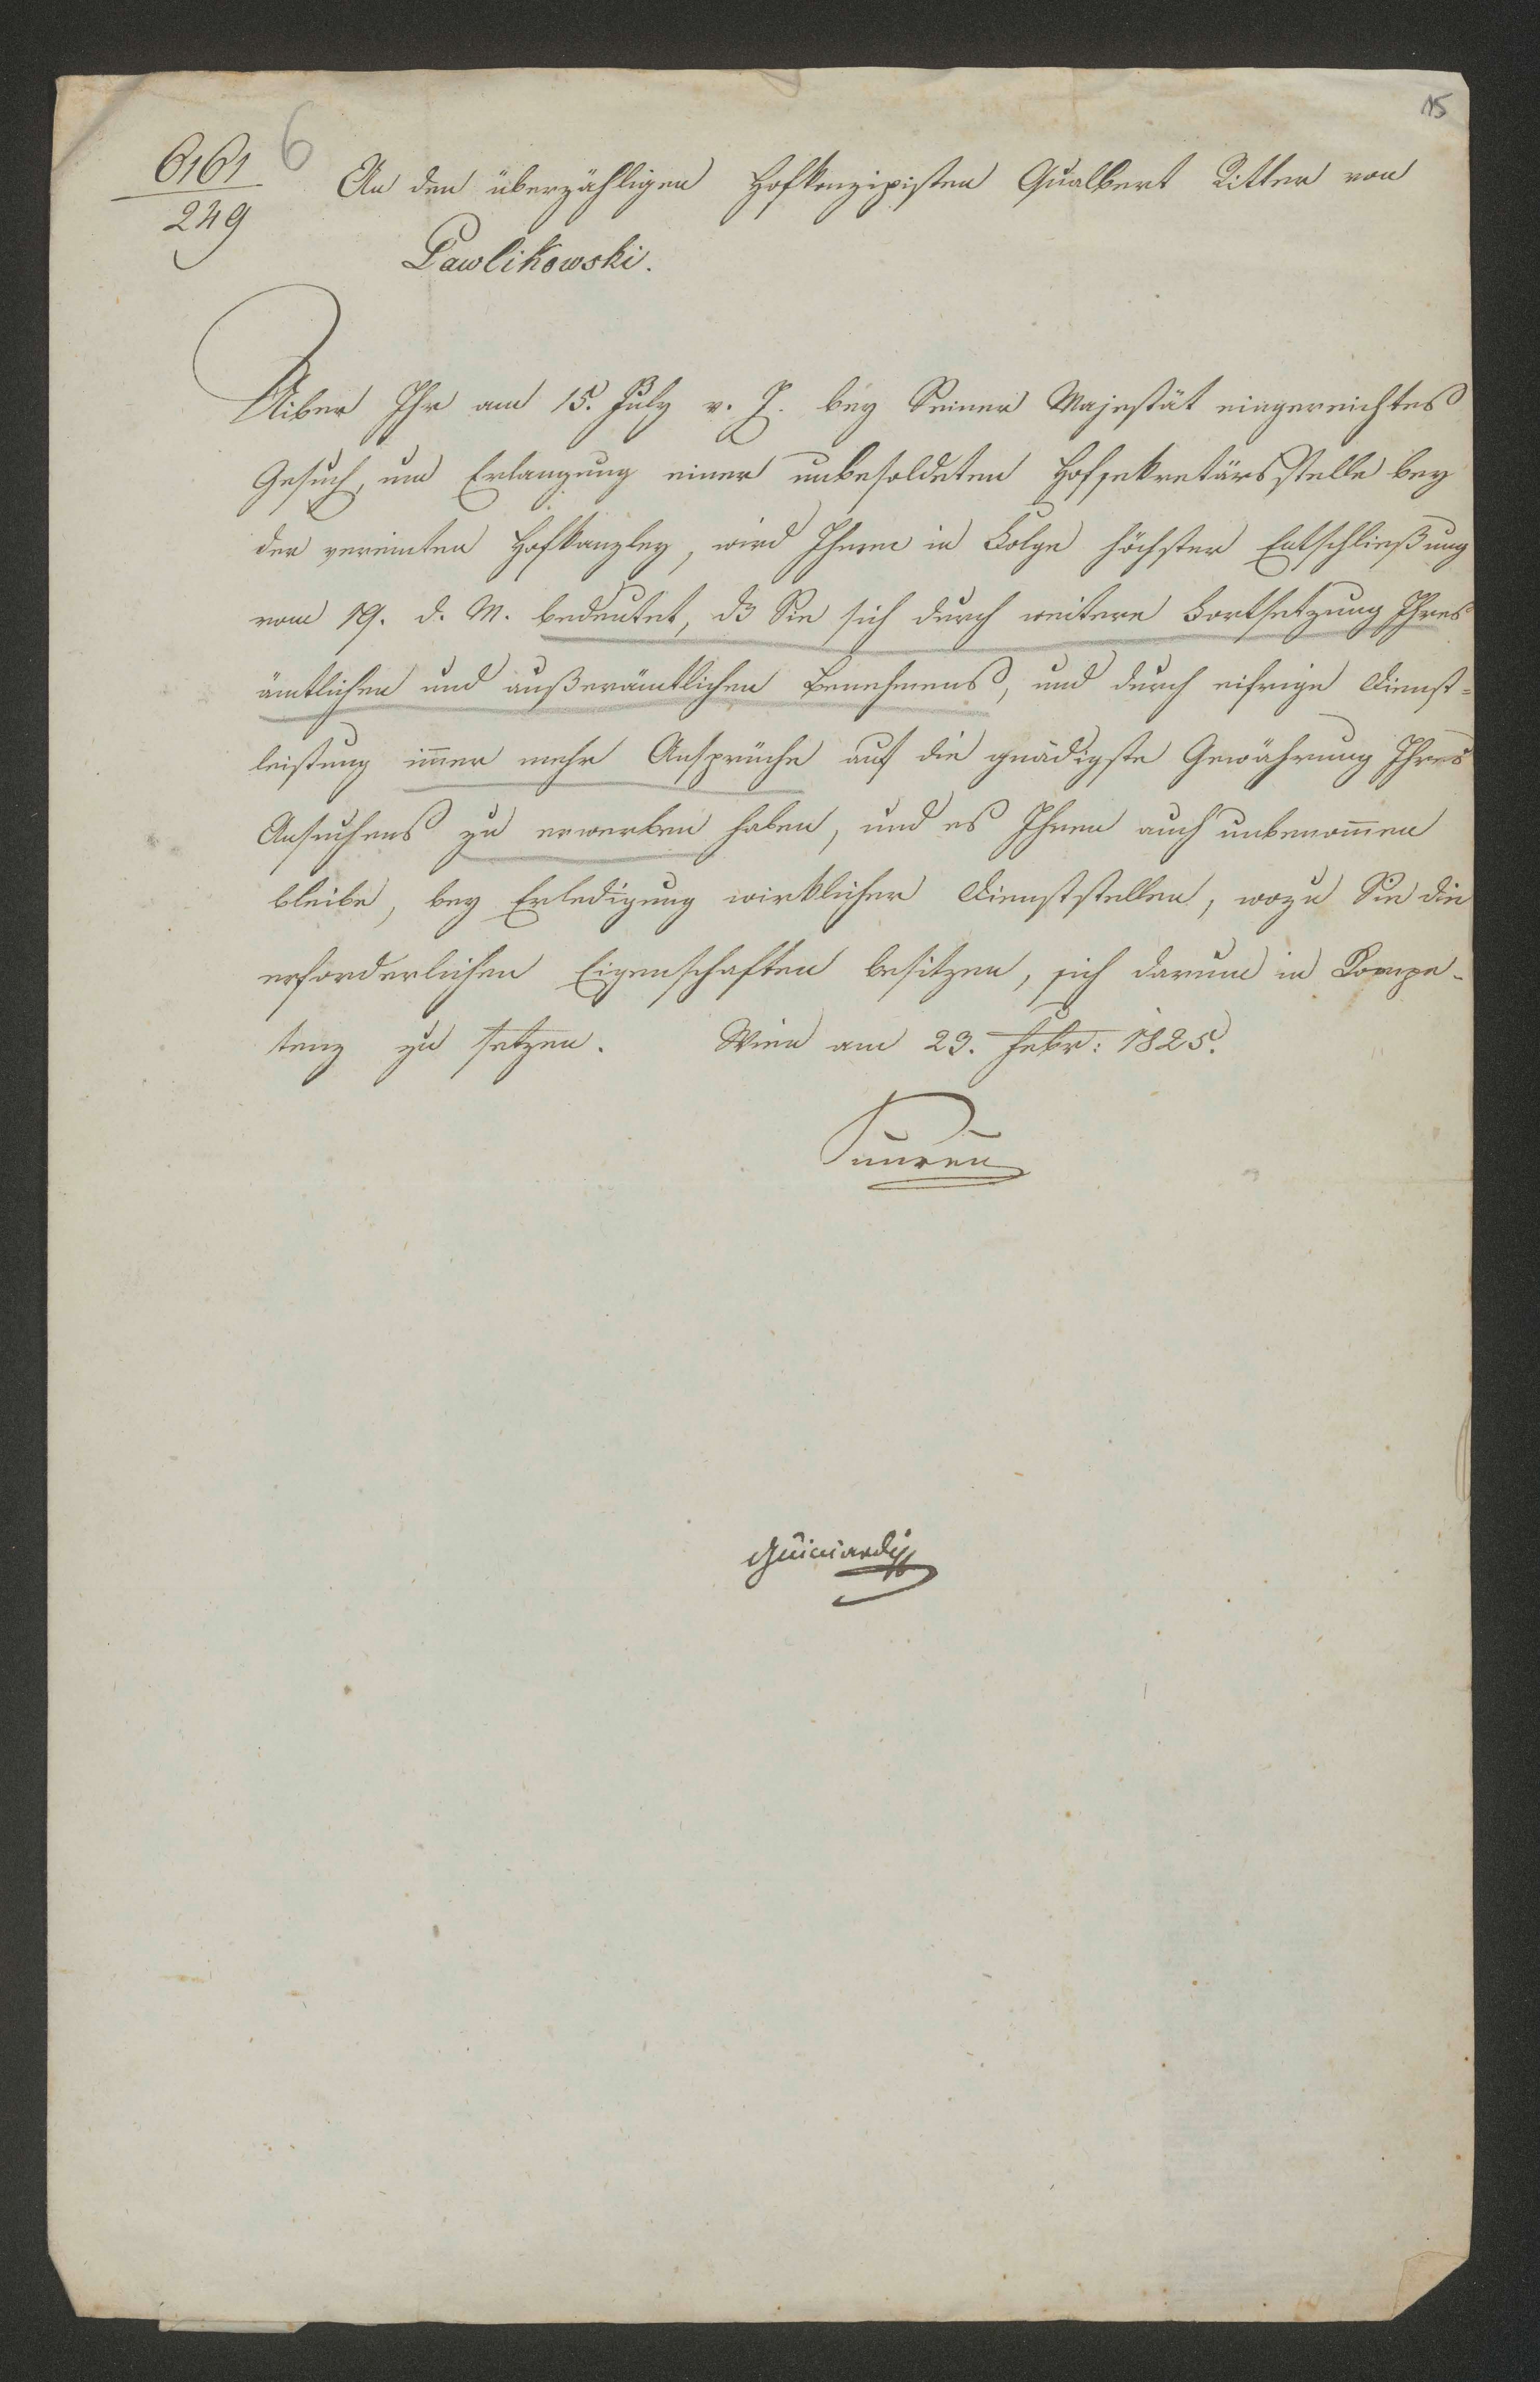 15
6161
249
6
An den überzähligen Hofkonzipisten Gualbert Ritter von
Pawlikowski.
Uiber Ihr am 15. July v. J. bey Seiner Majestät eingereichtes
Gesuch, um Erlangung einer unbesoldeten Hofsekretärsstelle bey
der vereinten Hofkanzley, wird Ihnen in Folge höchster Entschließung
vom 19. d. M. bedeutet, dß Sie sich durch weitere Fortsetzung Ihres
ämtlichen und außerämtlichen Benehmens, und durch eifrige Dienst-
leistung im̄er mehr Ansprüche auf die gnädigste Gewährung Ihres
Ansuchens zu erwerben haben, und es Ihnen auch unbenom̄en
bleibe, bey Erledigung wirklicher Dienststellen, wozu Sie die
erforderlichen Eigenschaften besitzen, sich darum in Kompe-
tenz zu setzen. Wien am 23. Febr: 1825.
Guicciardi